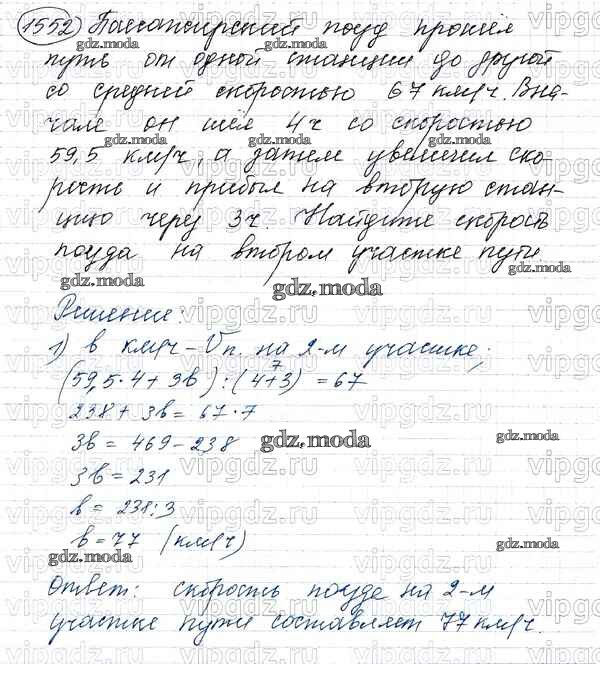 1552 Пассажирский поезд прошёл
путь от одной станции до другой
со средней скоростью 67 км/ч. Вна-
чале он шёл 4ч со скоростью
59,5 км/ч, а затем увеличил ско-
рость и прибыл на вторую стан-
цию через 3ч. Найдите скорость
поезда на втором участке пути
gdz.moda
Решение:
1) в км/ч – Vп. на 2-м участке;
(59,5·4 + 3в) : (4+3) = 67
7
238 + 3в = 67·7
3в = 469 – 238
3в = 231
в = 231:3
в = 77 (км/ч)
Ответ: скорость поезда на 2-м
участке пути составляет 77 км/ч.
vipgdz.ru